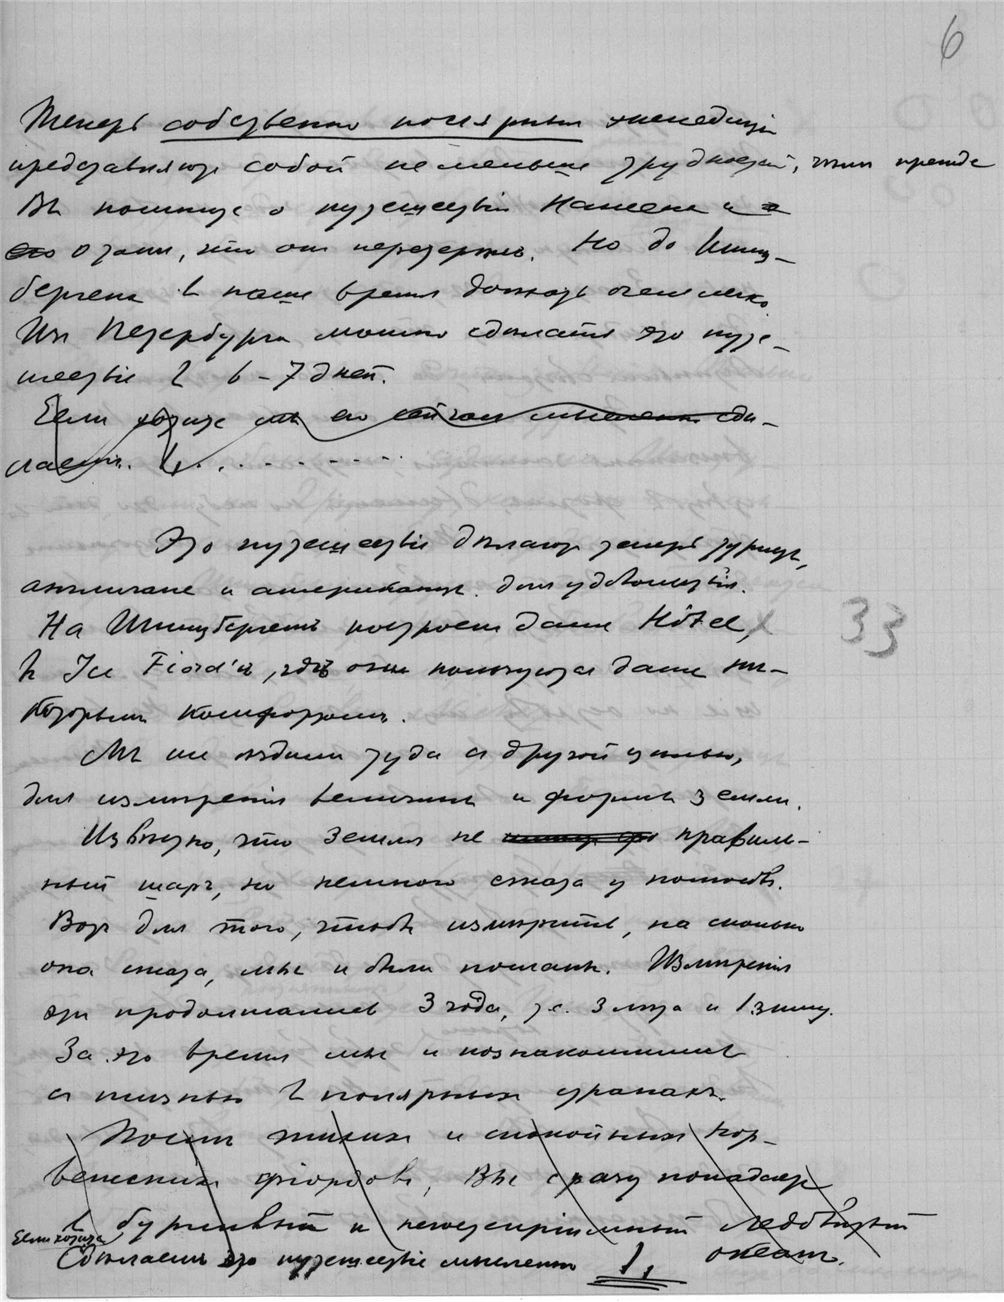 6
Теперь собственно полярныя экспедиціи
представляютъ собой не меньше трудностей, чѣмъ прежде
Вы помните о путешествіи Нансена и о
его о томъ, что онъ перетерпѣлъ. Но до Шпиц-
бергена въ наше время доѣхать очень легко.
Изъ Петербурга можно сдѣлать это путе-
шествіе въ 6-7 дней.
Если хотите мы его сейчасъ мысленно сдѣ-
лаемъ.
Это путешествіе дѣлаютъ теперь туристы,
англичане и американцы для удовольствія.
На Шпицбергенѣ построенъ даже Hôtel,
въ Ice Fiord'ѣ, гдѣ они пользуются даже нѣ-
которымъ комфортомъ.
33
Мы же ѣздили туда съ другой цѣлью,
для измѣренія величины и формы земли.
Извѣстно, что земля не правиль-
ный шаръ, но немного сжата у полюсовъ.
Вотъ для того, чтобы измѣрить, на сколько
она сжата, мы и были посланы. Измѣренія
эти продолжались 3 года, т.е. 3 лѣта и 1 зиму.
За это время мы и познакомились
съ жизнью въ полярныхъ странахъ.
Послѣ тихихъ и спокойныхъ Нор-
вежскихъ фіордовъ, Вы сразу попадаете
въ бурливый и негостепріимный Ледовитый
океанъ.
Если хотите
Сдѣлаемъ это путешествіе мысленно